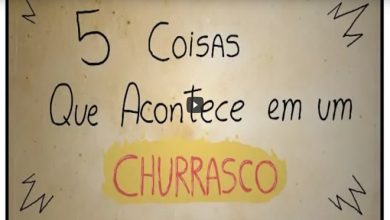 5 Coisas
Que Acontece em um
CHURRASCO